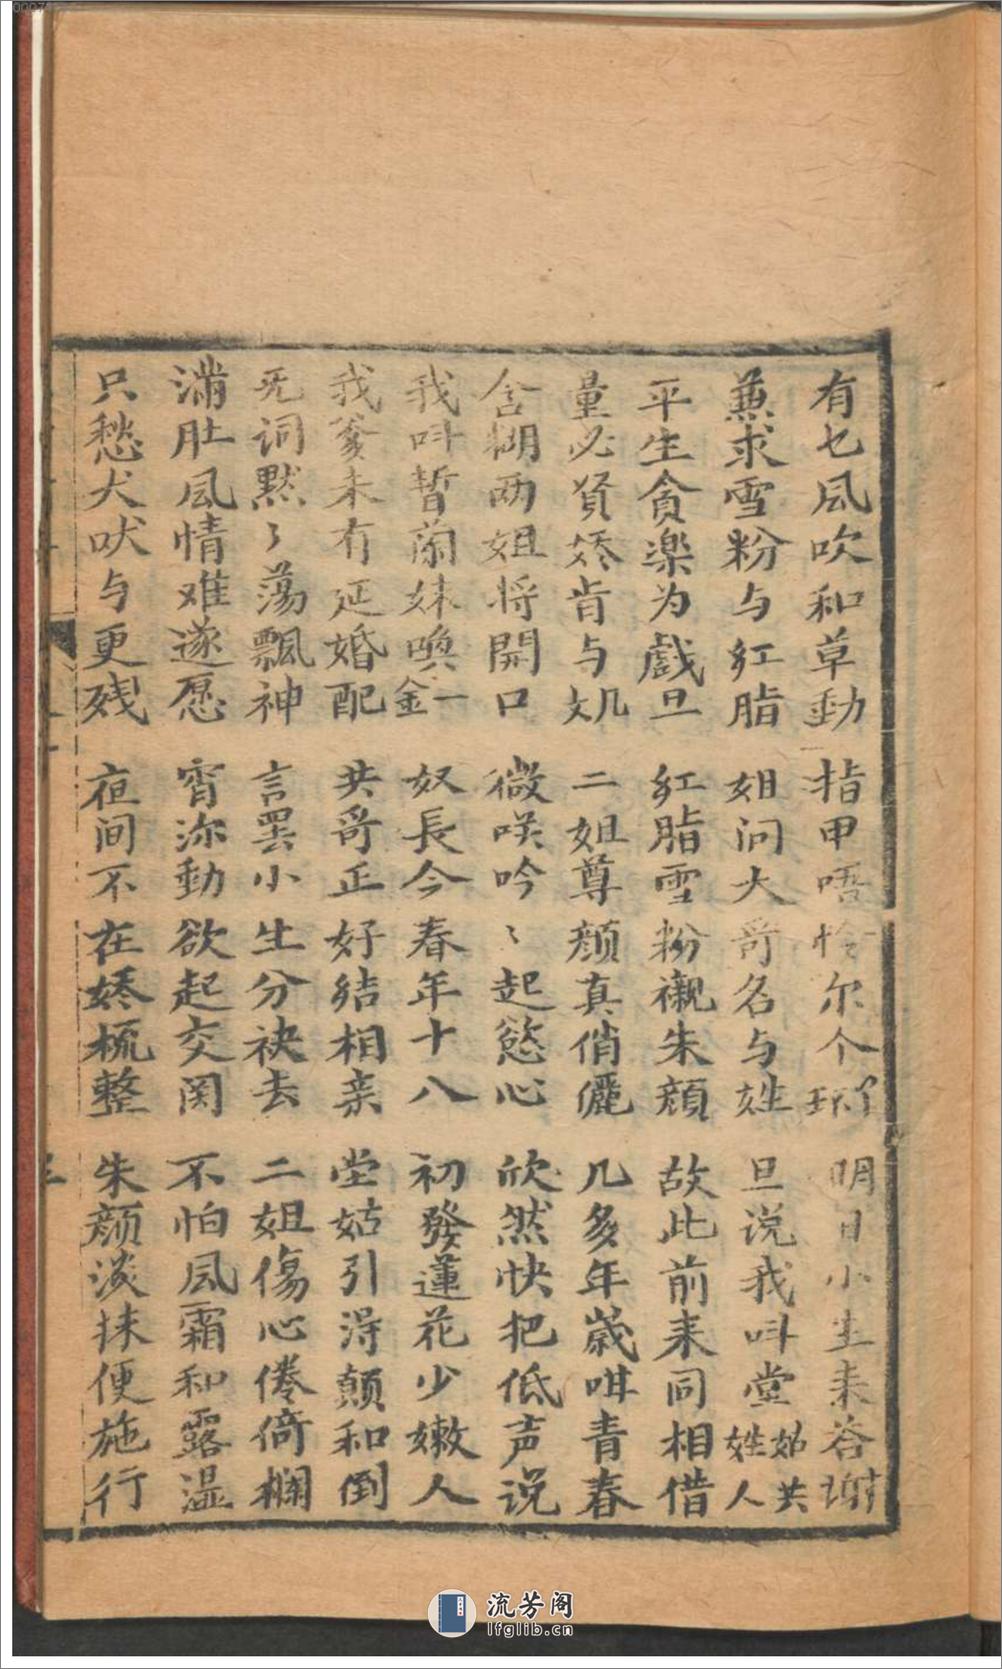 有乜风吹和草動 指甲唔怜尔个 明日小生耒答謝
兼求雪粉与紅脂 姐问大哥名与姓 旦说我叫堂姓人姑共
平生貪楽为戲旦 紅脂雪粉襯朱顔 故此前耒同相借
量必賢娇肯与奴 二姐尊颜真俏儷 几多年歲咁青春
含糊两姐将開口 微咲吟〻起慾心 欣然快把低声说
我叫暂蘭妹喚金一 奴長今春年十八 初發蓮花少嫩人
我爹未有延婚配 共哥正好结相亲 堂姑引淂顛和倒
无词黙〻荡飄神 言罢小生分袂去 二姐傷心倦倚欄
滿肚风情难遂愿 宵沵動欲起交関 不怕风霜和露湿
只愁犬吠与更残 夜间不在娇梳整 朱颜淡抹便施行
流芳阁
lfglib.cn